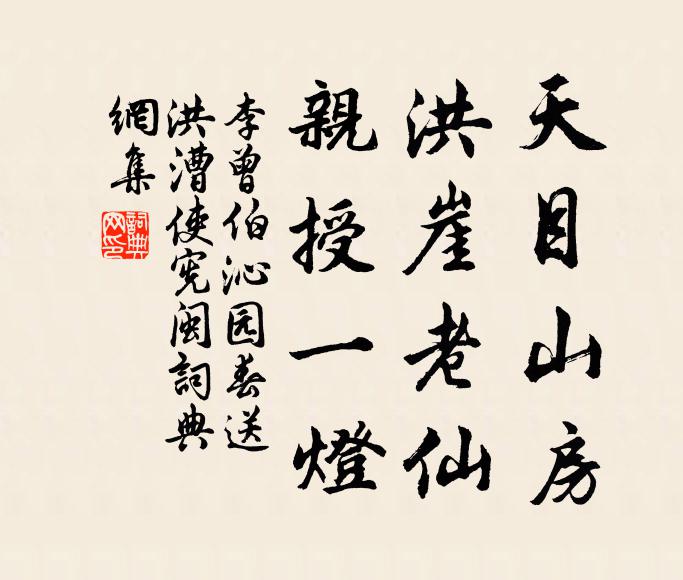 天目山房
洪崖老仙
親授一燈
李曾伯沁园春送
洪漕使宪闽詞典
網集
詞典
网印